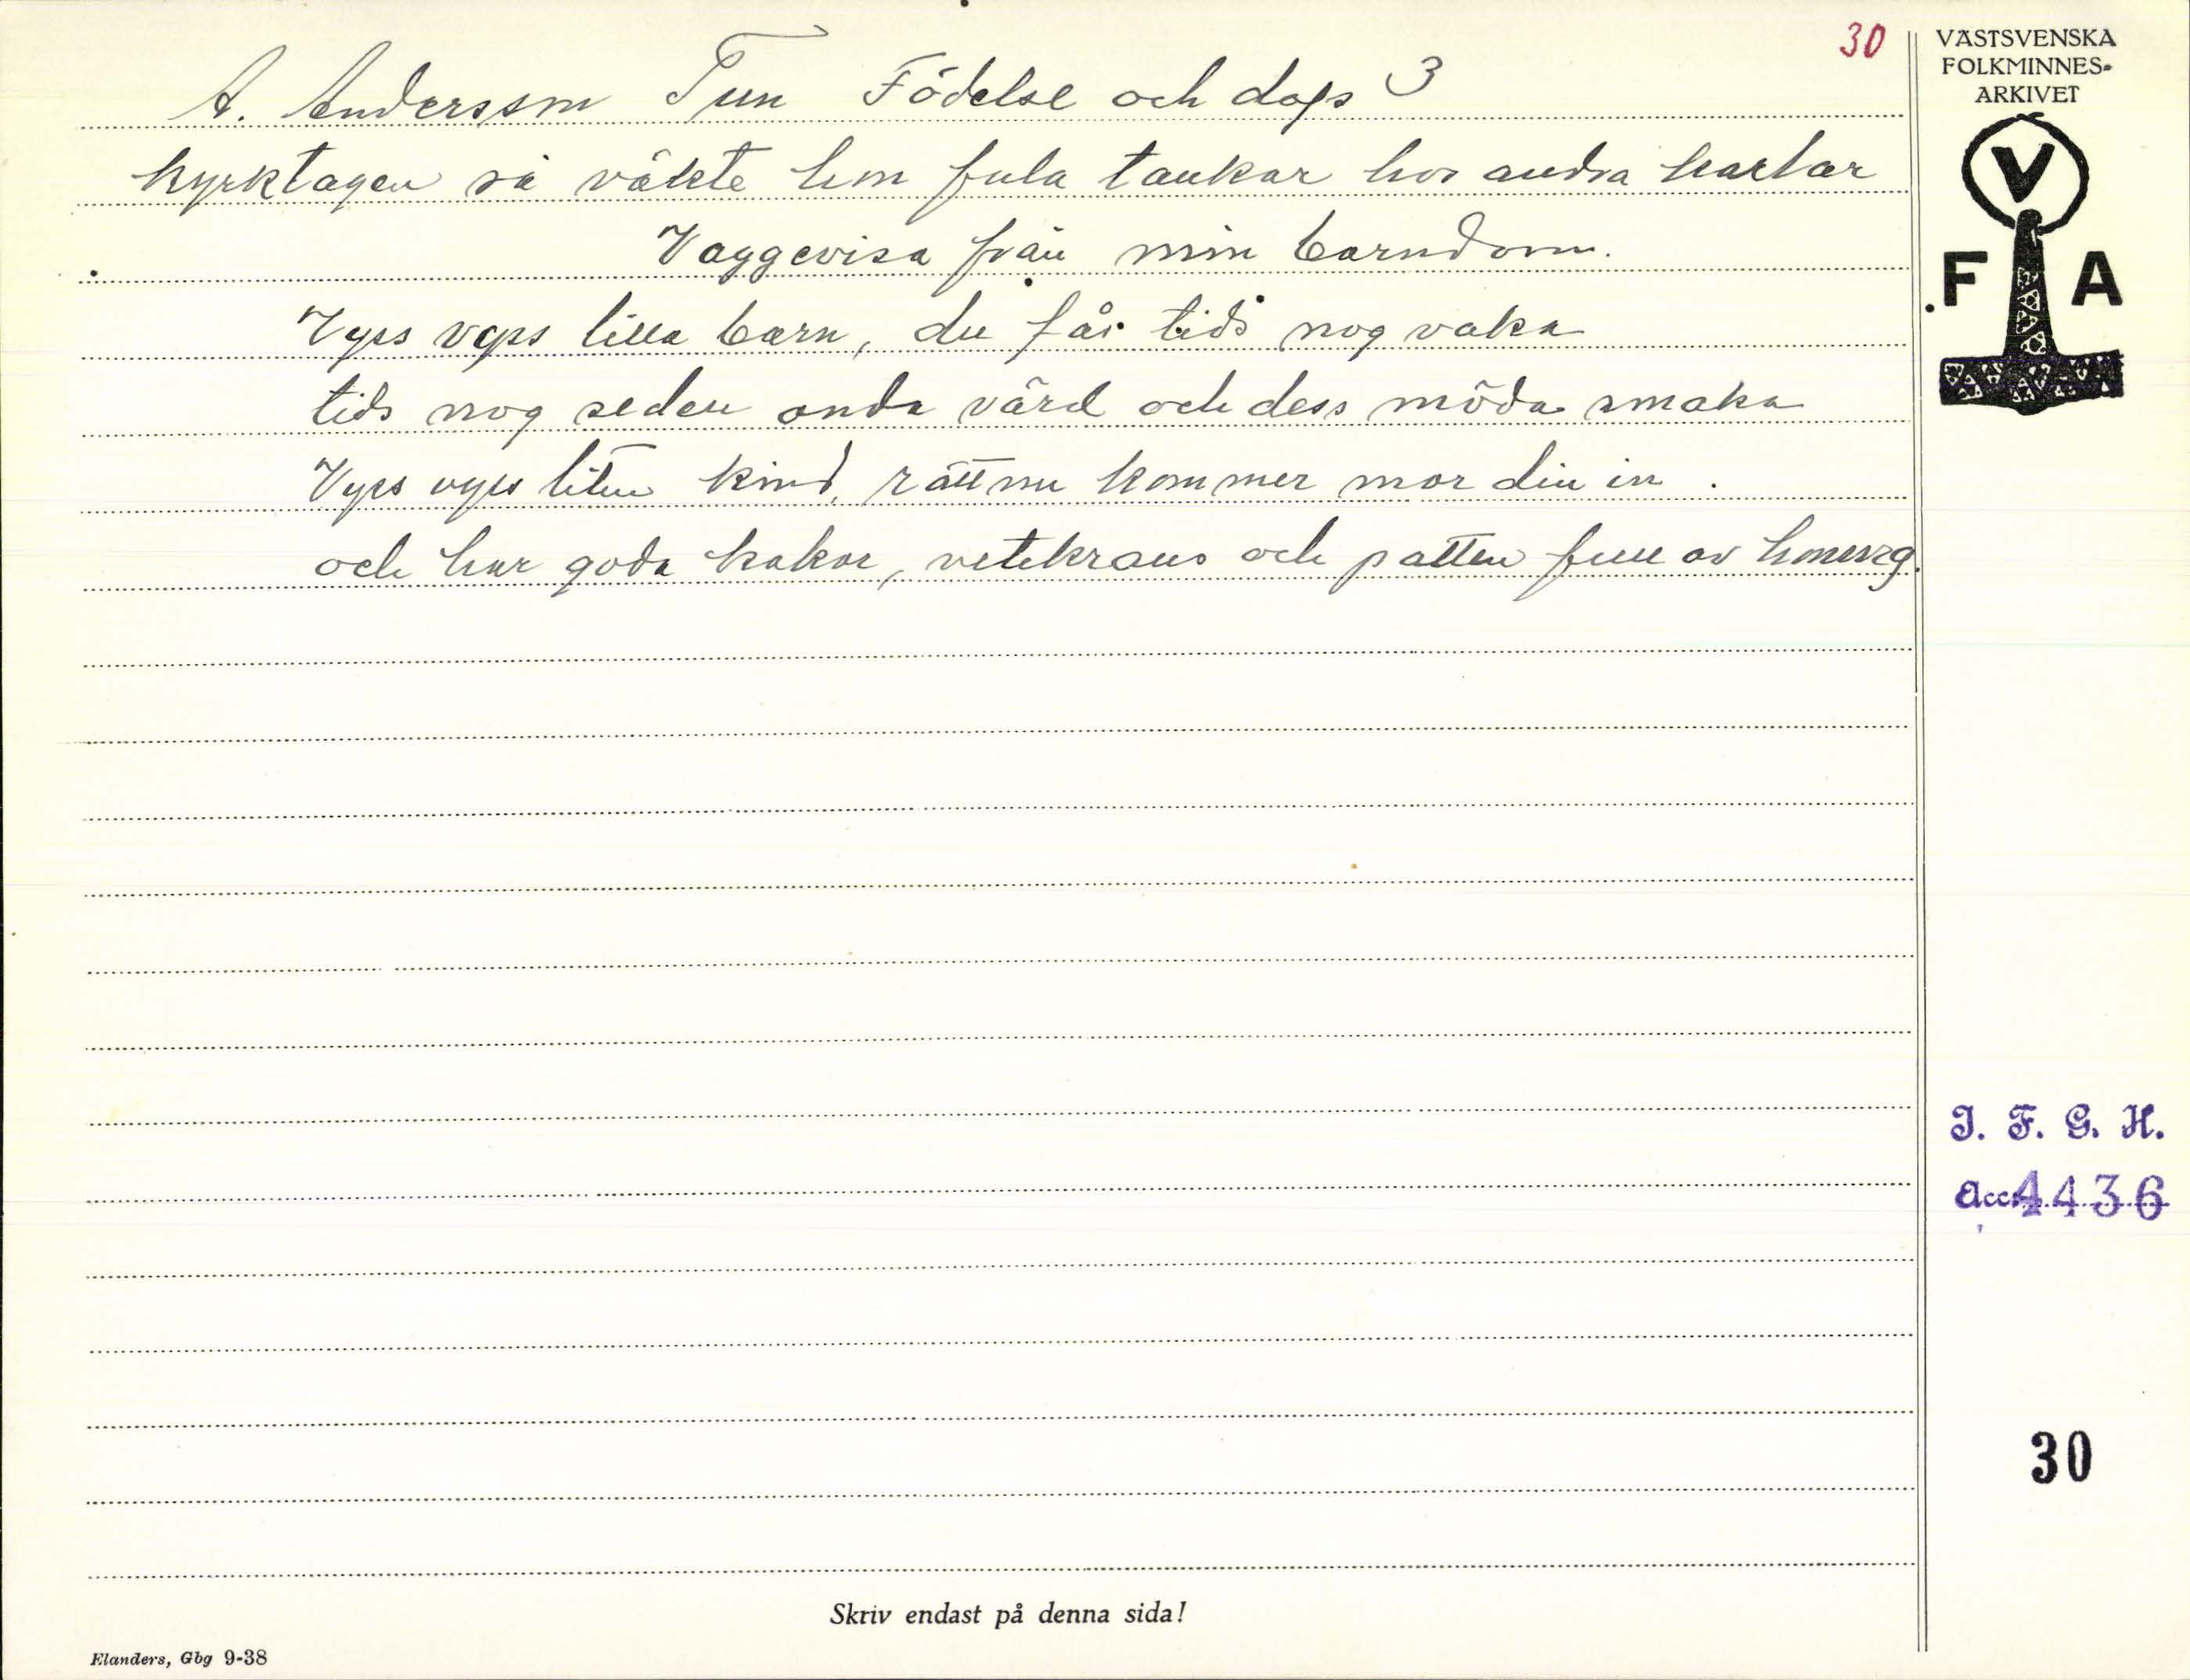 30
A. Andersson Tun Födelse och dops 3
kyrktagen så väkte hon fula tankar hos andra karlar
Vaggevisa från min barndom.
Vyss vyss lilla barn, du får tids nog vaka
tids nog seden onda värd och dess möda smaka
Vyss vyss liten kind, rätt nu kommer mor din in.
och har goda kakor, vetekrans och patten full av honung.
VÄSTSVENSKA
FOLKMINNES-
ARKIVET
V
F A
I. F. G. H.
Acc. 4436
30
Skriv endast på denna sida!
Elanders, Gbg 9-38